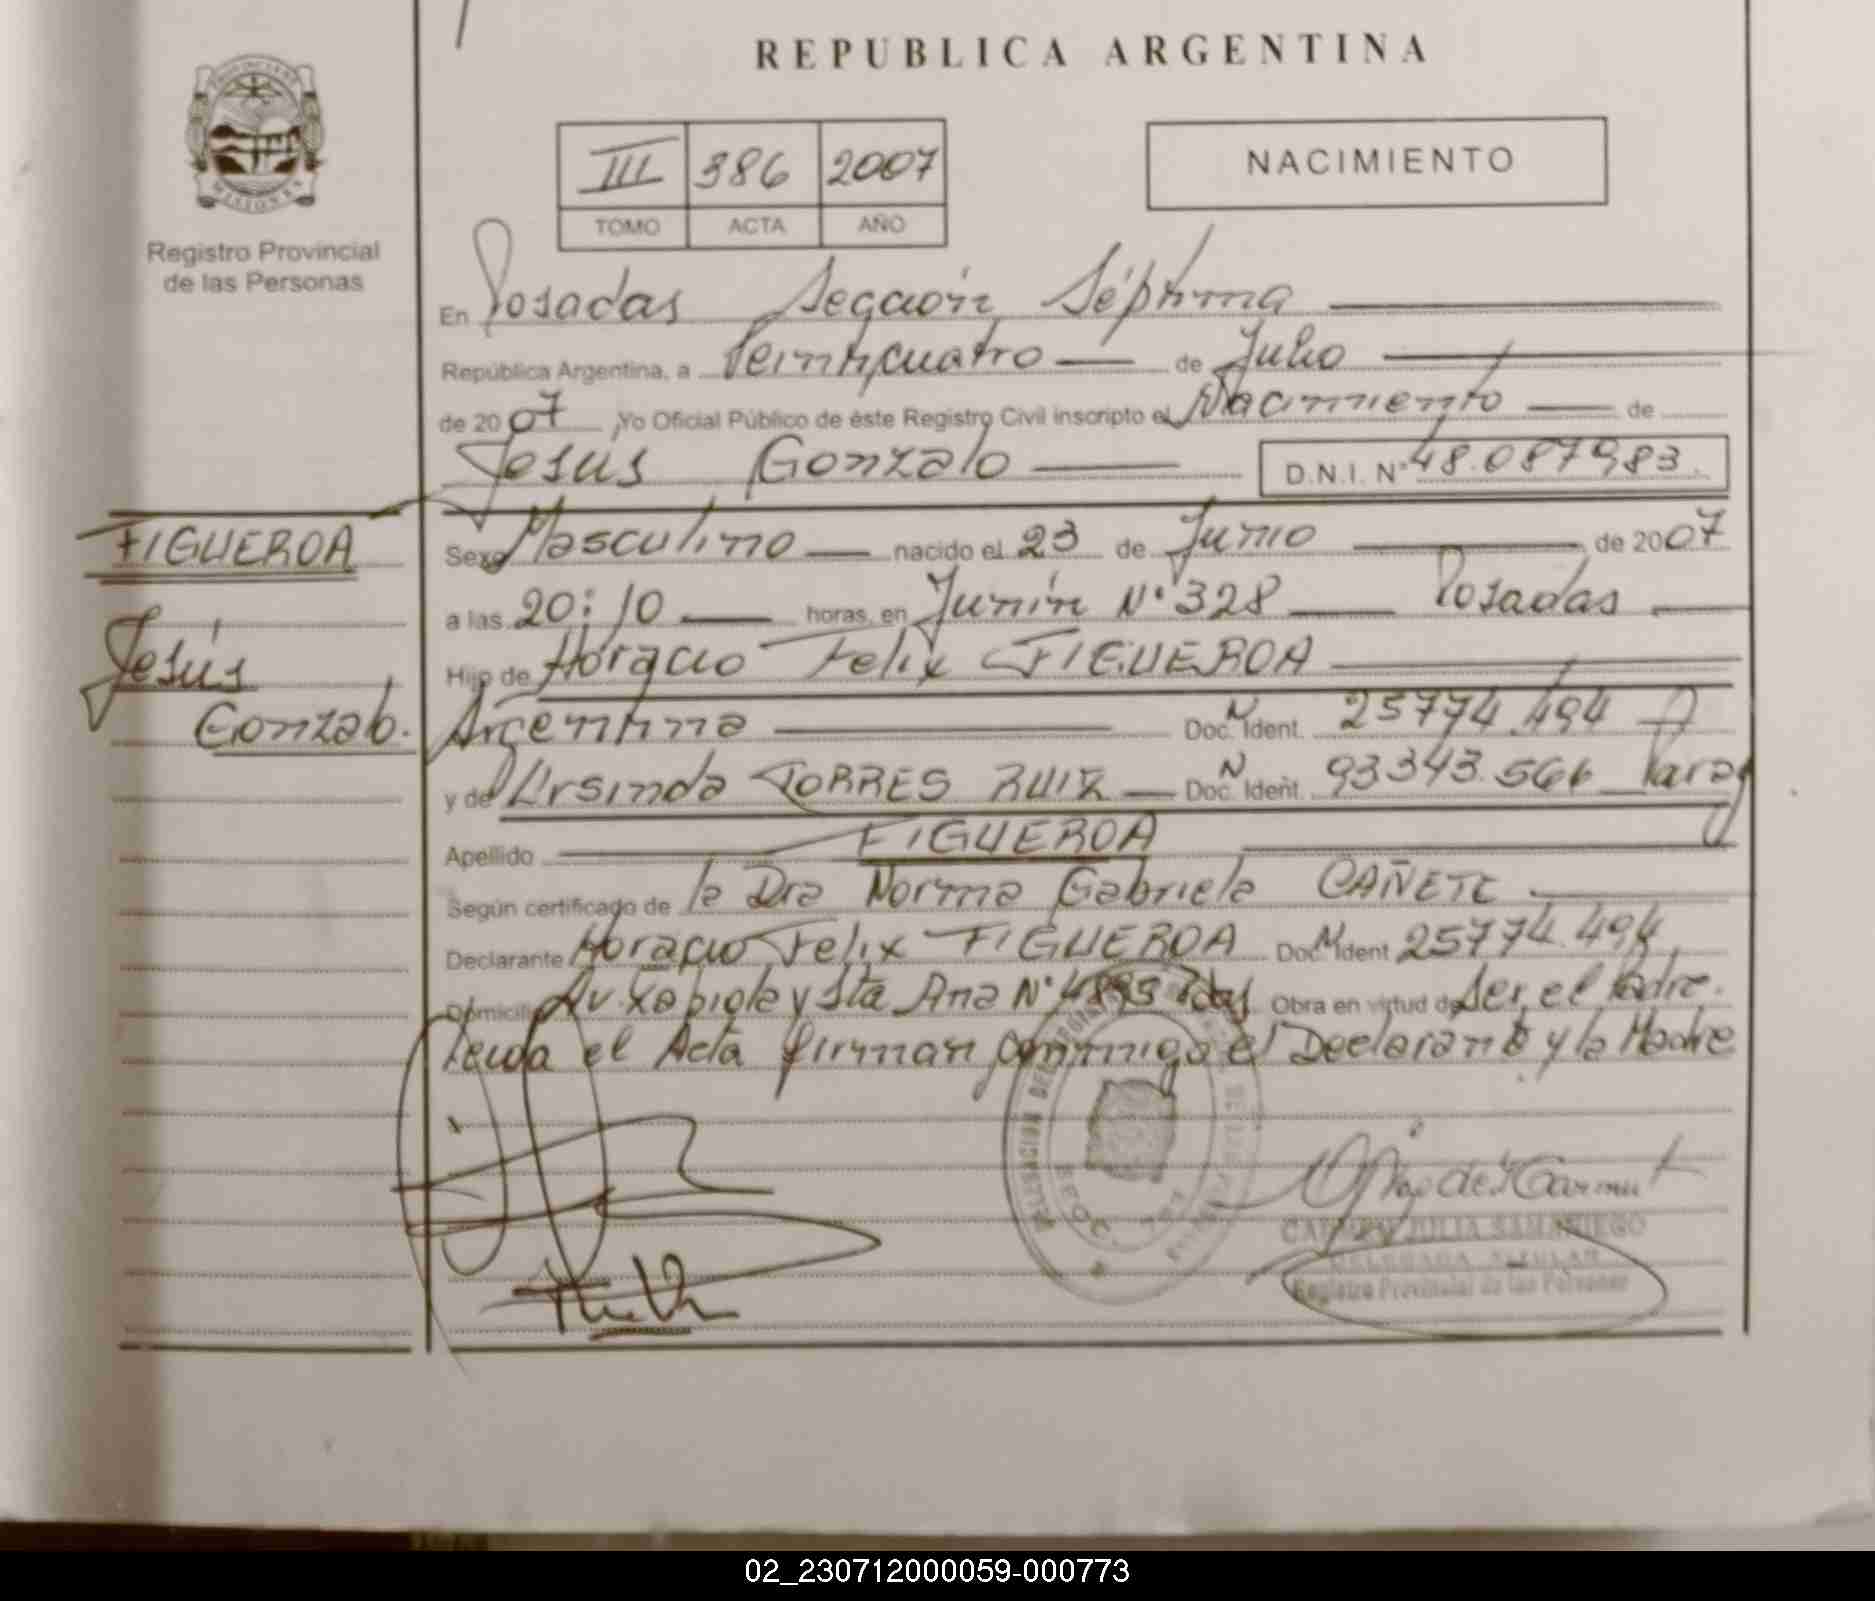 REPUBLICA ARGENTINA
PROVINCIA DE MISIONES
Registro Provincial
de las Personas
III 386 2007
TOMO ACTA AÑO
NACIMIENTO
En Posadas Sección Séptima
República Argentina, a Veinticuatro de Julio
de 2007 Yo Oficial Público de éste Registro Civil inscripto el Nacimiento de
Jesús Gonzalo D.N.I. Nº 48.087.983.
FIGUEROA
Jesús
Gonzalo.
Sexo Masculino nacido el 23 de Junio de 2007
a las 20:10 horas, en Junín Nº 328 Posadas
Hijo de Horacio Felix FIGUEROA
Argentina Doc. N Ident. 25774.494
y de Ursinda TORRES RUIZ Doc. N Ident. 93343.566 Parag
Apellido FIGUEROA
Según certificado de la Dra Norma Gabriela CAÑETE
Declarante Horacio Felix FIGUEROA Doc. N Ident 25774.494
Domicilio Av. y Sta Ana Nº Pdas Obra en virtud de Ser el Padre.
Leida el Acta firman conmigo el Declarante y la Madre
CARMEN JULIA SAMANIEGO
DELEGADA TITULAR
Registro Provincial de las Personas
02_230712000059-000773